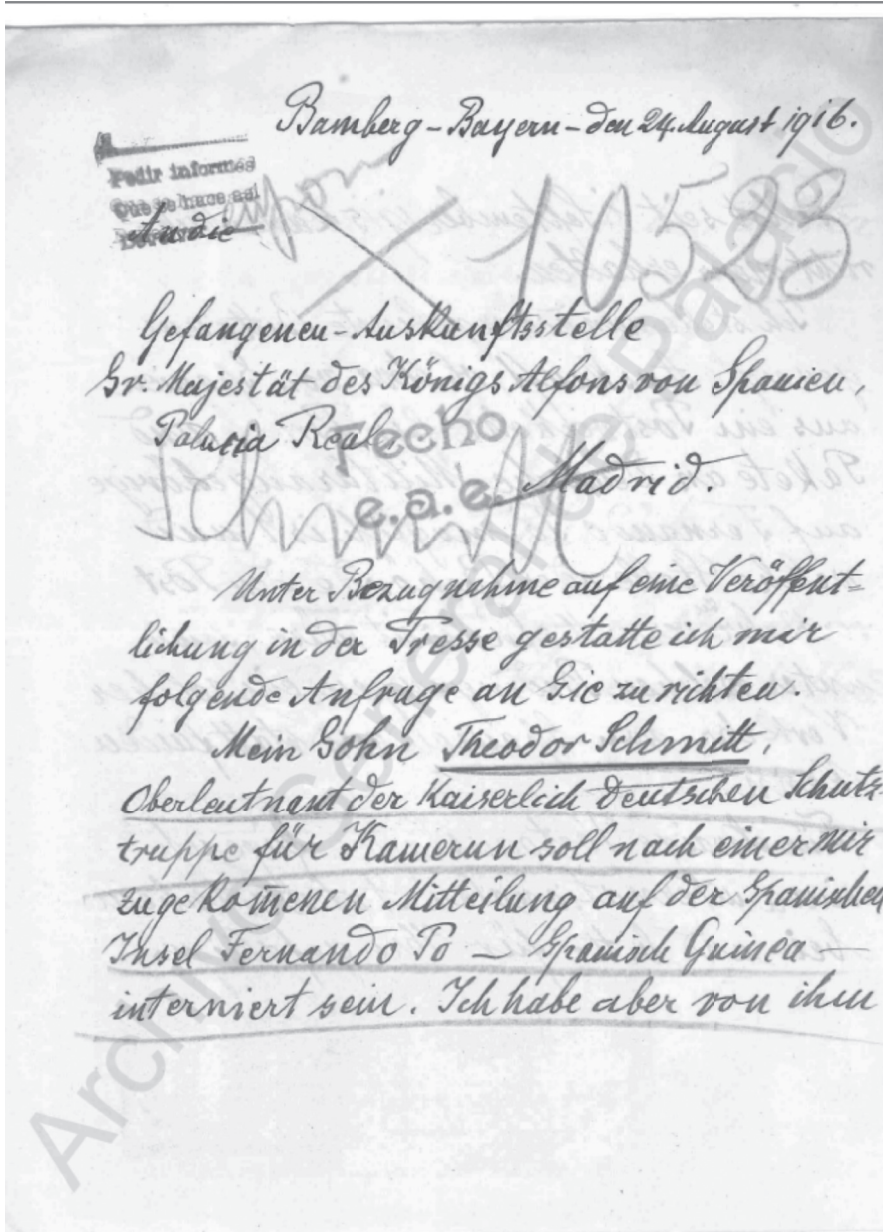 Bamberg - Bayern - den 24. August 1916.
Pedir informes
Que se hace así
An die
10523
Gefangenen-Auskunftsstelle
Sr. Majestät des Königs Alfons von Spanien,
Palacia Real.
Fecho
e.a.e.
Madrid.
Schmitt
Unter Bezugnahme auf eine Veröffent=
lichung in der Presse gestatte ich mir
folgende Anfrage an Sie zu richten.
Mein Sohn Theodor Schmitt,
Oberleutnant der Kaiserlich Deutschen Schutz
truppe für Kamerun soll nach einer mir
zugekom̅enen Mitteilung auf der Spanischen
Insel Fernando Po – Spanisch Guinea –
interniert sein. Ich habe aber von ihm
Archivo General de Palacio